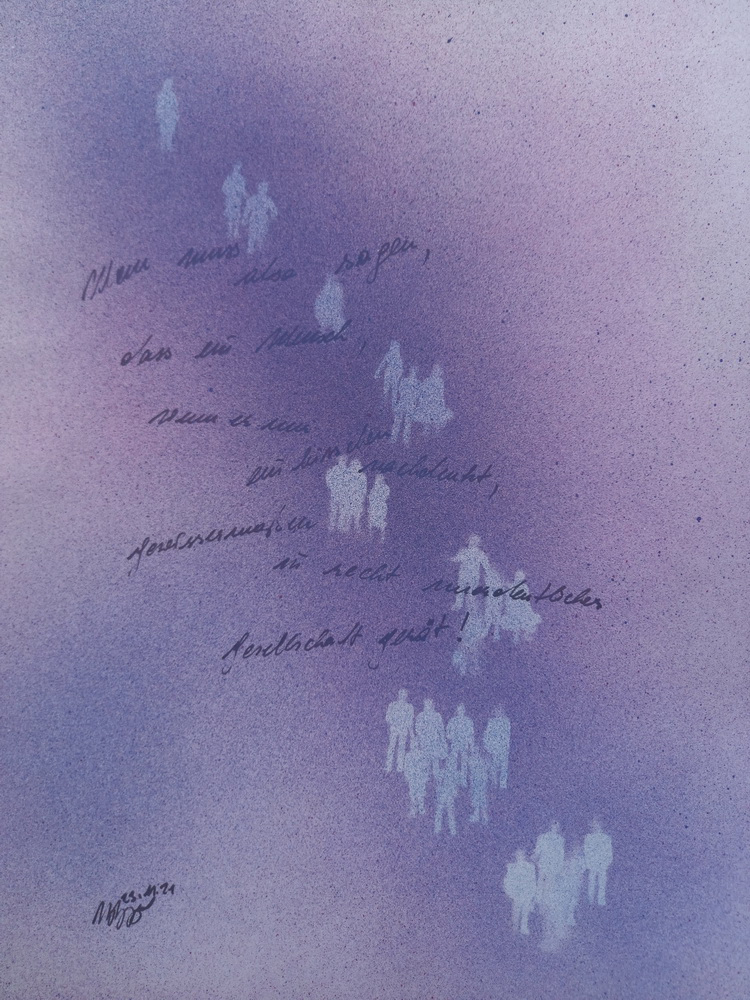 Man muss also sagen,
dass ein Mensch,
wenn er nur
ein bisschen nachdenkt,
gewissermaßen
in recht unordentliche
Gesellschaft gerät!